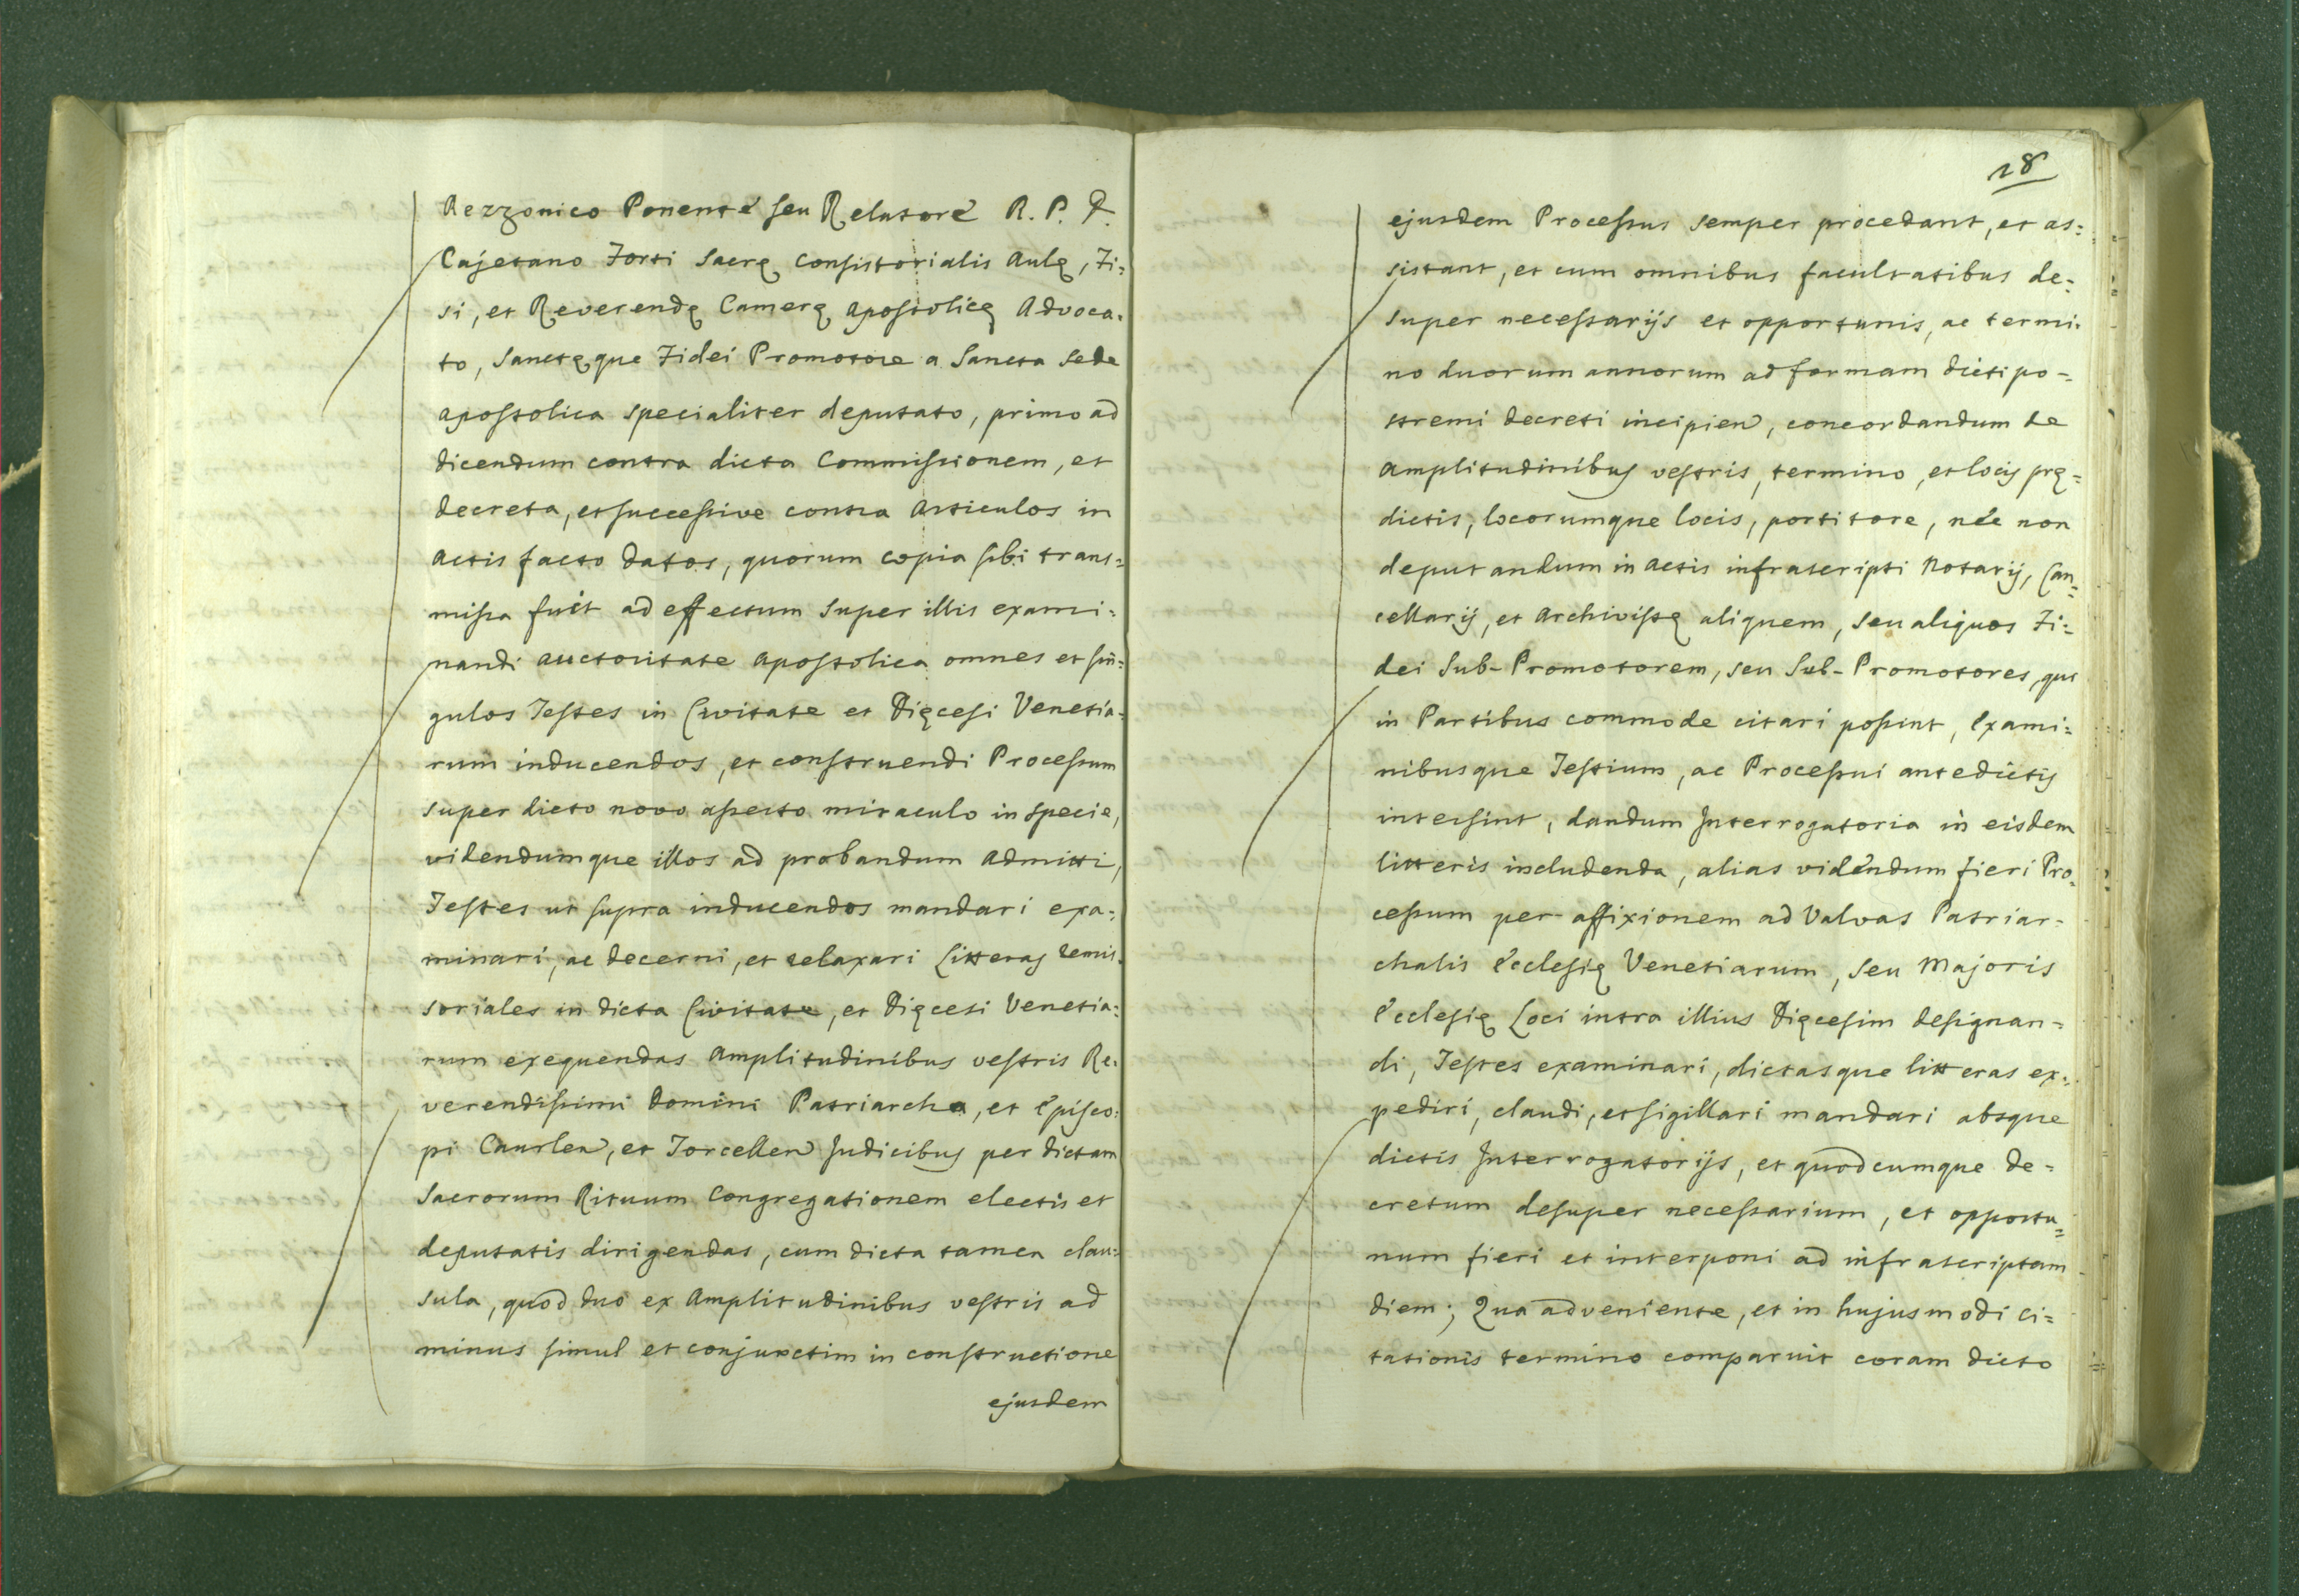 Rezzonico Ponente seu Relatore R. P. D.
Cajetano Forti Sacrę Consistorialis Aulę, Fi=
si, et Reverendę Camerę Apostolicę Advoca=
to, Sanctęque Fidei Promotore a Sancta Sede
Apostolica specialiter deputato, primo ad
dicendum contra dicta Commissionem, et
decreta, et successive contra Articulos in
Actis facto datos, quorum copia sibi trans=
missa fuit ad effectum super illis exami=
nandi auctoritate Apostolica omnes et sin=
gulos Testes in Civitate et Dięcesi Venetia=
rum inducendos, et construendi Processum
super dicto novo asserto miraculo in specie,
videndumque illos ad probandum admitti,
Testes ut supra inducendos mandari exa=
minari, ac decerni, et relaxari Litteras remis=
soriales in dicta Civitate, et Dięcesi Venetia=
rum exequendas Amplitudinibus vestris Re=
verendissimi Domini Patriarcha, et Episco=
pi Caurlen, et Torcellen Judicibus per dictam
Sacrorum Rituum Congregationem electis et
deputatis dirigendas, cum dicta tamen clau=
sula, quod duo ex Amplitudinibus vestris ad
minus simul et conjunctim in constructione
ejusdem
18
ejusdem Processus semper procedant, et as=
sistant, et cum omnibus facultatibus de=
super necessarijs et opportunis, ac termi=
no duorum annorum ad formam dicti po=
stremi decreti incipien, concordandum de
Amplitudinibus vestris, termino, et locis prę=
dictis, locorumque locis, portitore, nec non
deputandum in Actis infrascripti Notarij, Can=
cellarij, et Archivistę aliquem, seu aliquos Fi=
dei Sub-Promotorem, seu Sub-Promotores, qui
in Partibus commode citari possint, Exami=
nibusque Testium, ac Processui antedictis
intersint, dandum Interrogatoria in eisdem
litteris includenda, alias videndum fieri Pro=
cessum per affixionem ad Valvas Patriar=
chalis Ecclesię Venetiarum, seu Majoris
Ecclesię Loci intra illius Dięcesim designan=
di, Testes examinari, dictasque litteras ex=
pediri, claudi, et sigillari mandari absque
dictis Interrogatorijs, et quodcumque de=
cretum desuper necessarium, et opportu=
num fieri et interponi ad infrascriptam
diem; Qua adveniente, et in hujusmodi ci=
tationis termino comparuit coram dicto